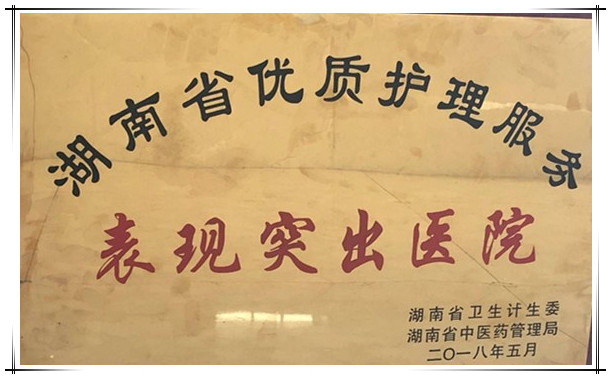 湖南省优质护理服务
表现突出医院
湖南省卫生计生委
湖南省中医药管理局
二〇一八年五月